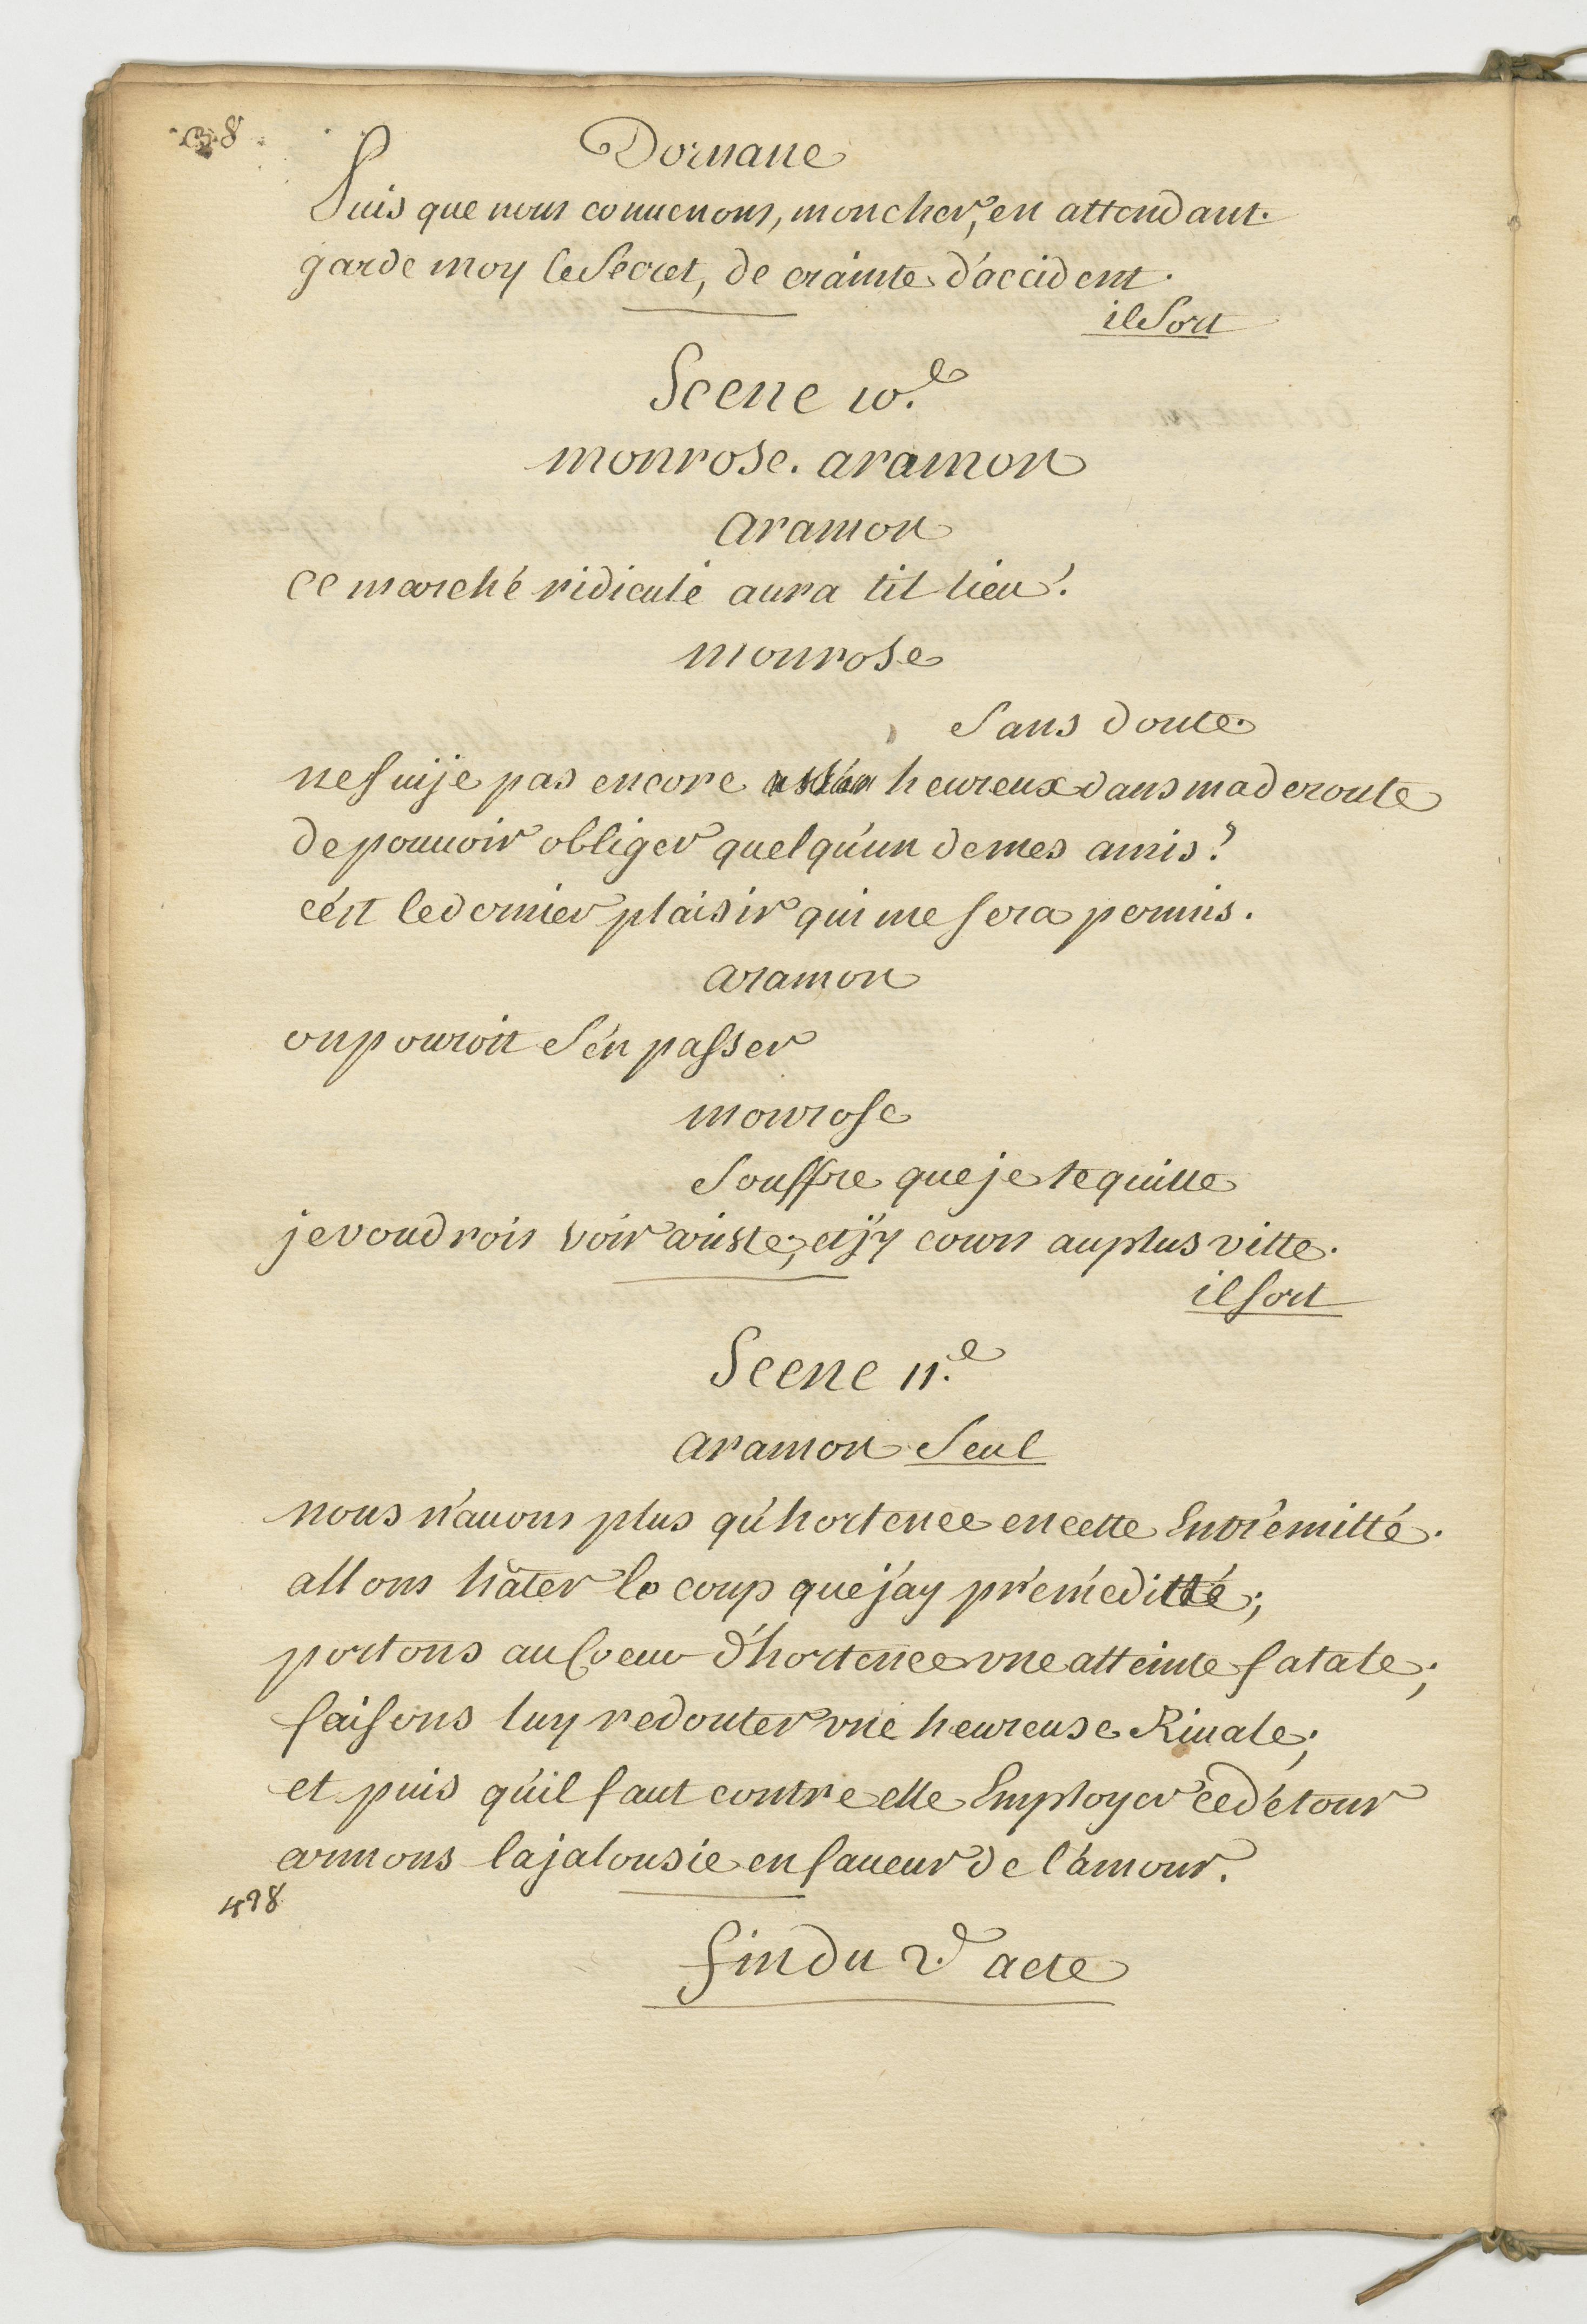 38
Dornane
Puis que nous conuenons, mon cher, en attendant.
garde moy le Secret, de crainte d'accident.
il Sort
Scene 10.e
monrose. aramon
aramon
ce marché ridicule aura til lieu?
monrose
Sans doute.
ne suije pas encore heureux dans ma deroute
de pouuoir obliger quelqu'un de mes amis?
c'est le dernier plaisir qui me sera permis.
aramon
on pouroit s'en passer
monrose
Souffre que je te quitte
je voudrois voir ariste, et j'y cours au plus vitte.
il sort
Scene 11.e
aramon Seul
nous n'auons plus qu'hortence en cette Extrémitté.
allons hâter le coup que j'ay préméditté;
portons au Coeur d'hortence vne atteinte fatale;
faisons luy redouter vne heureuse Riuale;
et puis qu'il faut contre elle Employer ce détour
armons la jalousie en faueur de l'amour.
498
fin du 2.d acte